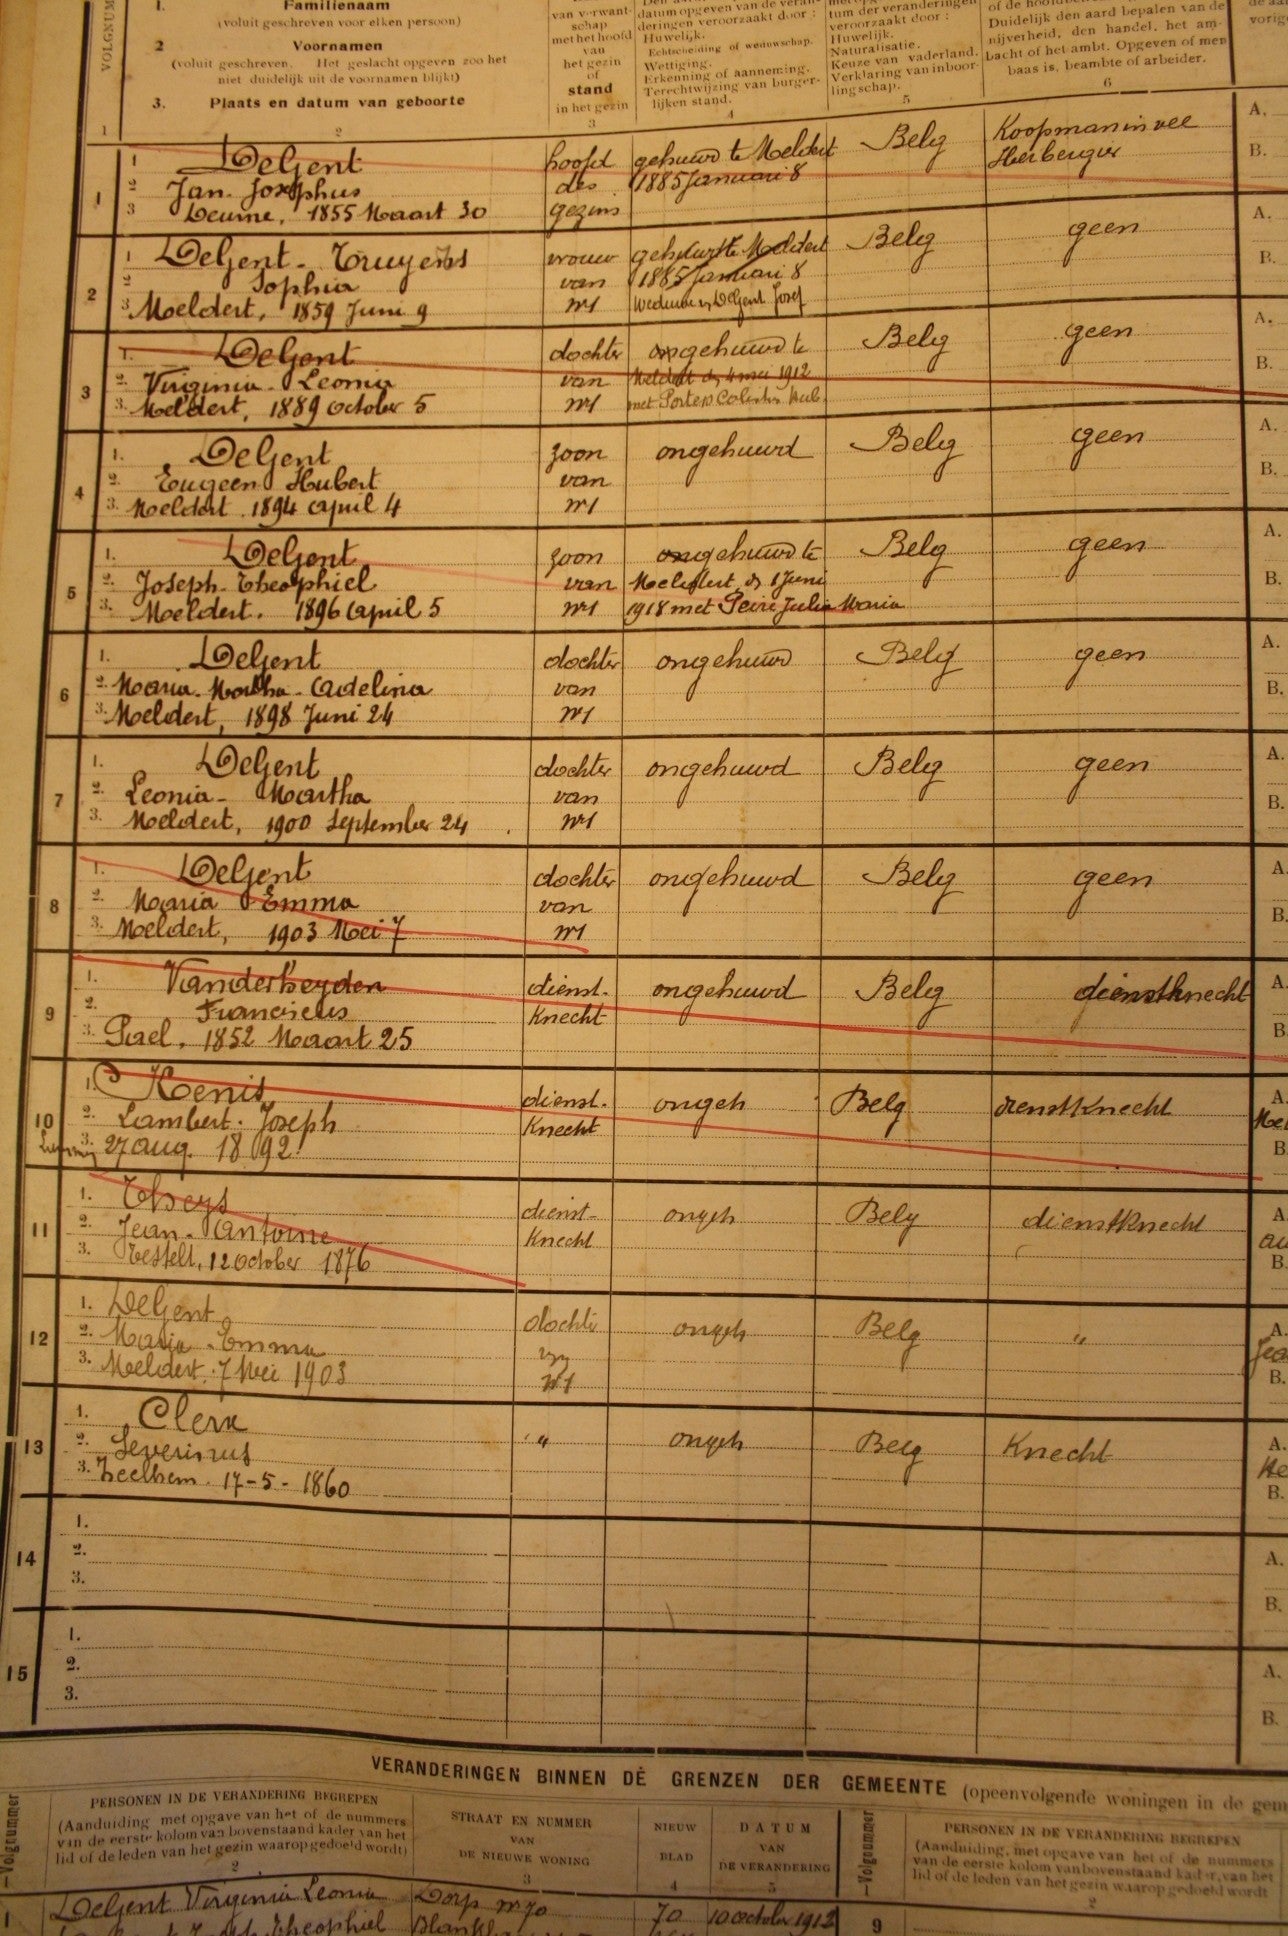 VOLGNUM
1. Familienaam
(voluit geschreven voor elken persoon)
2 Voornamen
(voluit geschreven. Het geslacht opgeven zoo het
niet duidelijk uit de voornamen blijkt)
3. Plaats en datum van geboorte
van verwant-
schap
met het hoofd
van
het gezin
of
stand
in het gezin
datum opgeven van de veran-
deringen veroorzaakt door :
Huwelijk.
Echtscheiding of weduwschap.
Wettiging.
Erkenning of aanneming.
Terechtwijzing van burger-
lijken stand.
tum der veranderingen
veroorzaakt door :
Huwelijk.
Naturalisatie.
Keuze van vaderland.
Verklaring van inboor-
lingschap.
Duidelijk den aard bepalen van de
nijverheid, den handel, het am-
bacht of het ambt. Opgeven of men
baas is, beambte of arbeider.
1 2 3 4 5 6
1
1 DeGent hoofd gehuwd te Meldert Belg Koopman in vee A.
2 Jan. Josephus des 1885 Januari 8 Herbergier B.
3 Deurne, 1855 Maart 30 gezins
2
1 DeGent - Truyens vrouw gehuwd te Meldert Belg geen A.
2 Sophia van 1885 Januari 8 B.
3 Meldert, 1859 Juni 9 nr1 Weduwe v. DeGent Josef
3
1. DeGent dochter ongehuwd te Belg geen A.
2. Virginia - Leonia van Meldert den 4 mei 1912 B.
3. Meldert, 1889 October 5 nr1 met
4
1. DeGent zoon ongehuwd Belg geen A.
2. Eugeen Hubert van B.
3. Meldert. 1894 april 4 nr1
5
1. DeGent zoon ongehuwd te Belg geen A.
2. Joseph. Theophiel van Meldert, den 1 Juni B.
3. Meldert. 1896 april 5 nr1 1918 met Peire Julia Maria
6
1. DeGent dochter ongehuwd Belg geen A.
2. Maria. Martha - Adelina van B.
3. Meldert, 1898 Juni 24 nr1
7
1. DeGent dochter ongehuwd Belg geen A.
2. Leonia - Martha van B.
3. Meldert, 1900 September 24 nr1
8
1. DeGent dochter ongehuwd Belg geen A.
2. Maria Emma van B.
3. Meldert, 1903 Mei 7 nr1
9
1. Vanderheyden dienst- ongehuwd Belg dienstknecht A.
2. Franciscus knecht B.
3. Pael. 1852 Maart 25
10
1. Kenis dienst- ongeh Belg dienstknecht A.
2. Lambert. Joseph knecht
3. 27 aug. 1892 B.
11
1. Theys dienst- ongeh Belg dienstknecht A.
2. Jean - Antoine knecht
3. Testelt, 12 October 1876 B.
12
1. DeGent dochter ongeh Belg " A.
2. Maria - Emma van
3. Meldert. 7 Mei 1903 nr1 B.
13
1. Clerx " ongeh Belg Knecht A.
2. Severinus
3. Zeelhem. 17-5-1860 B.
14
1. A.
2.
3. B.
15
1. A.
2.
3. B.
VERANDERINGEN BINNEN DE GRENZEN DER GEMEENTE (opeenvolgende woningen in de gem
Volgnummer
PERSONEN IN DE VERANDERING BEGREPEN
(Aanduiding met opgave van het of de nummers
van de eerste kolom van bovenstaand kader van het
lid of de leden van het gezin waarop gedoeld wordt)
2
STRAAT EN NUMMER
VAN
DE NIEUWE WONING
3
NIEUW
BLAD
4
DATUM
VAN
DE VERANDERING
5
Volgnummer
PERSONEN IN DE VERANDERING BEGREPEN
(Aanduiding, met opgave van het of de nummers
van de eerste kolom van bovenstaand kader, van het
lid of de leden van het gezin waarop gedoeld wordt
2
1 DeGent Virginia Leonia Dorp nr 70 70 10 October 1912 9
Theophiel